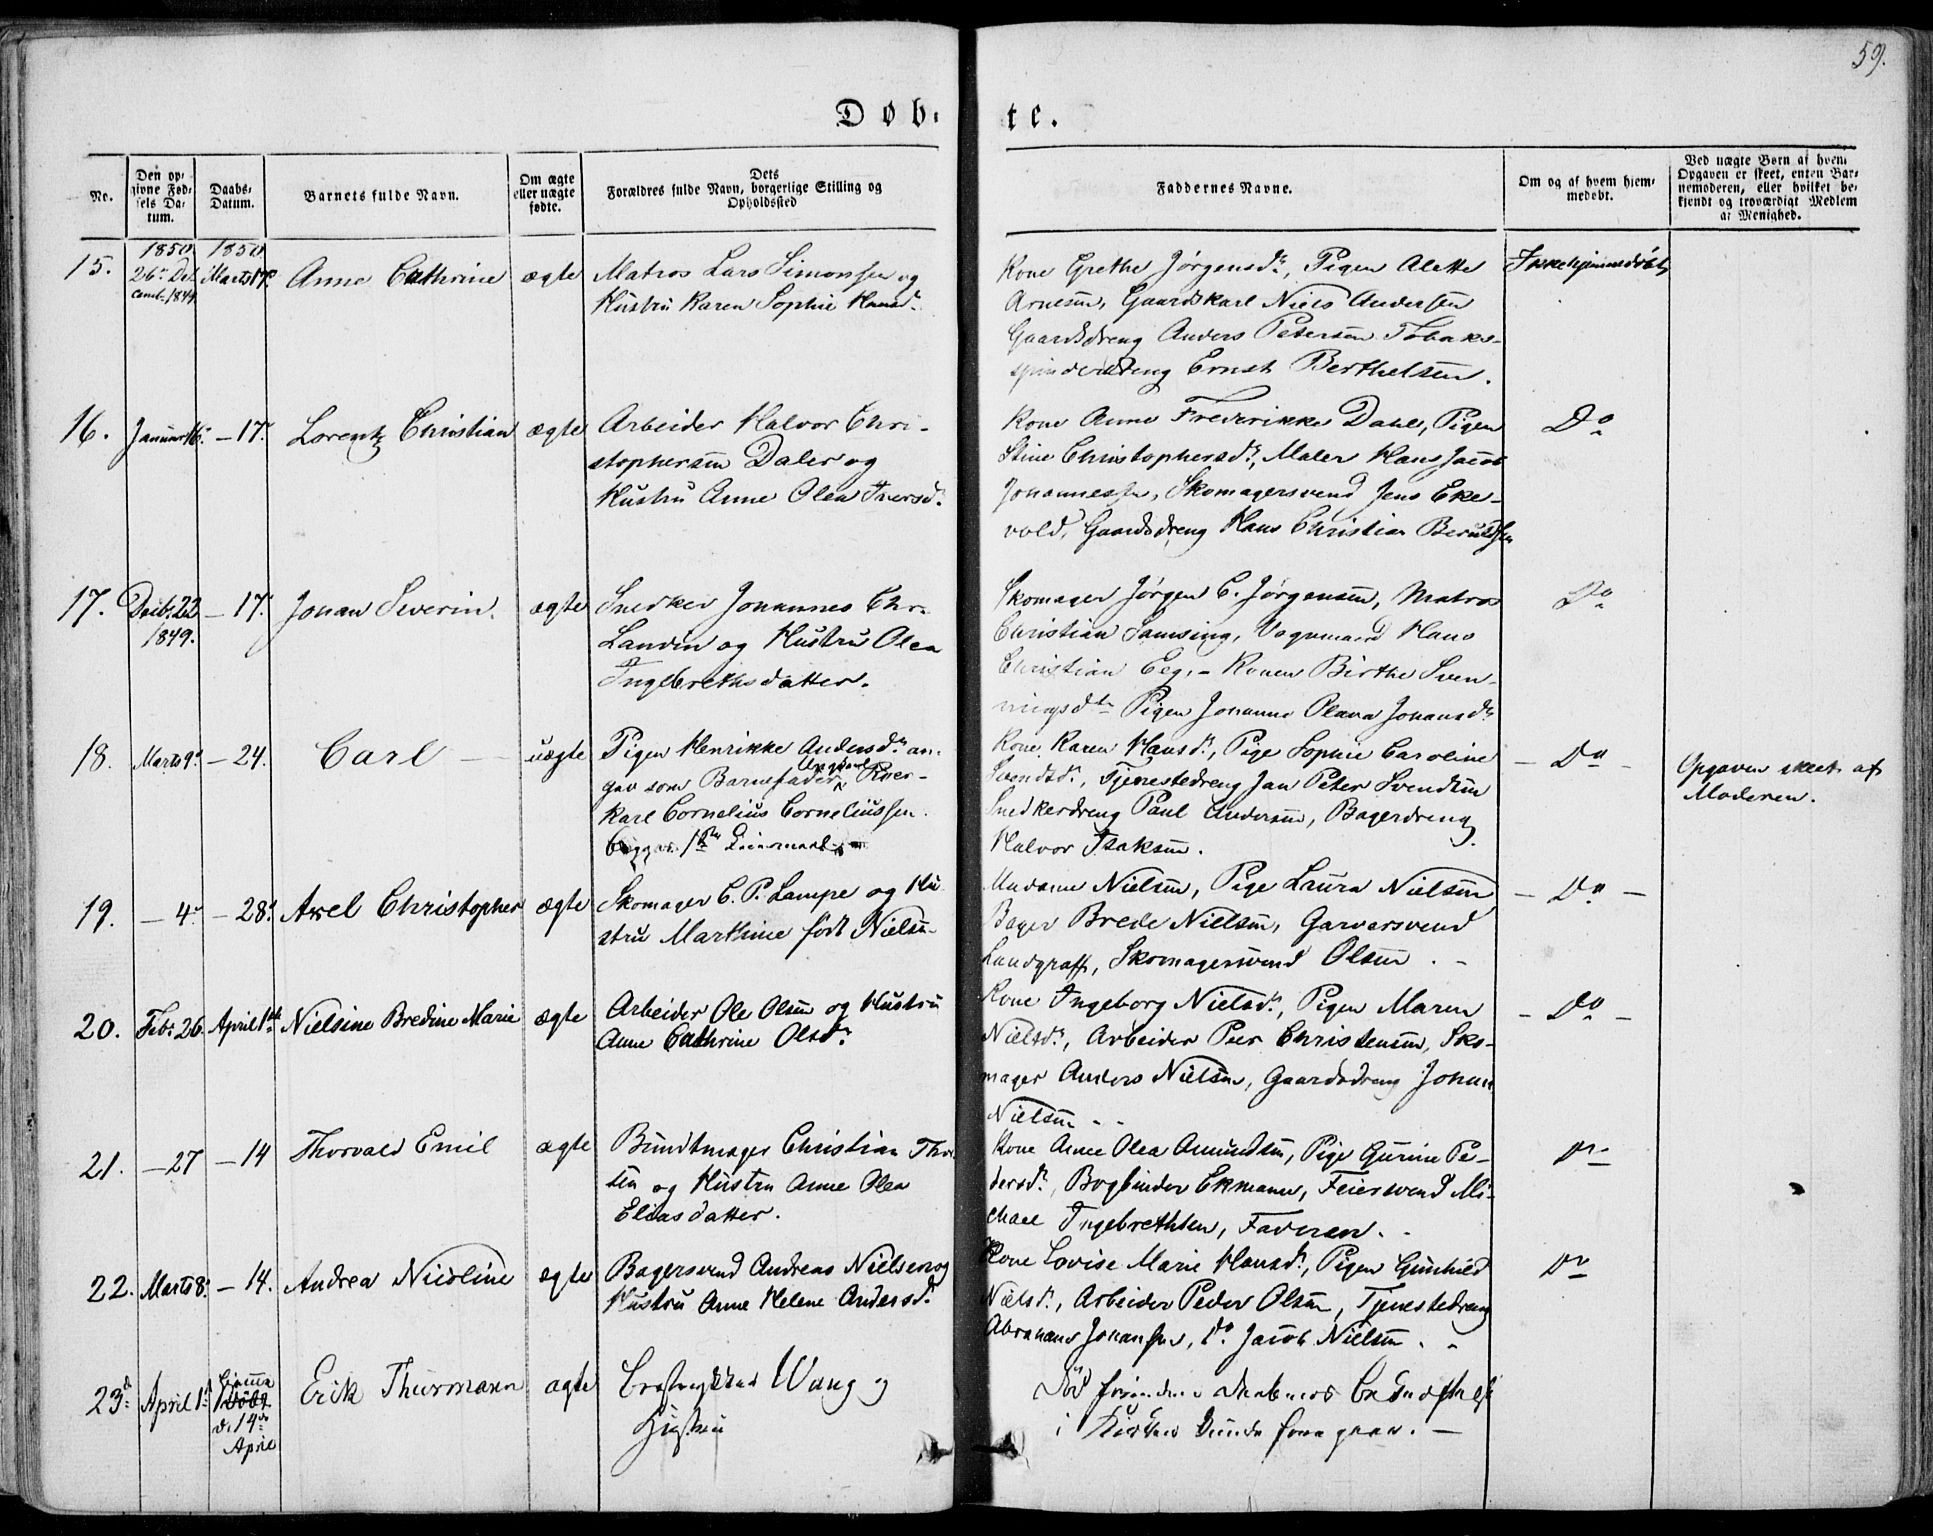 59.
Døb-
te.
No.
Den op-
givne Fød-
sels Da-
tum.
Daabs-
Datum.
Barnets fulde Navn.
Om ægte
eller uægte
fødte.
Dets
Forældres fulde Navn, borgerlige Stilling og
Opholdssted
Faddernes Navne.
Om og af hvem hjem-
medøbt.
Ved uægte Børn af hvem
Opgaven er skeet, enten Bar-
nemoderen, eller hvilket be-
kjendt og troværdigt Medlem
af Menighed.
1850 1850
15. 26de De- Marts 17de Anne Cathrine ægte Matros Lars Simonsen og
cemb. 1849
Hustru Karen Sophie Hansd.
Kone Grethe Jørgensdr, Pigen Alette Ikke hjemmedøbt
Arnesen, Gaardskarl Niels Andersen
Gaardsdreng Anders Petersen Tobaks-
spinderdreng Ernst Berthelsen.
16. Januar 16. – 17. Lorentz Christian ægte Arbeider Halvor Chri-
stophersen Daler og
Hustru Anne Olea Iversd.
Kone Anne Frederikke Dahl, Pigen Do
Stine Christophersdr, Maler Hans Jacob
Johannessen, Skomagersvend Jens Eke-
vold, Gaardsdreng Hans Christian Berulfsen
17. Decb. 22 – 17. Johan Severin. ægte Snedker Johannes Chr.
1849.
Landin og Hustru Olea
Ingebrethsdatter.
Skomager Jørgen C. Jørgensen, Matros Do
Christian Samsing, Vognmand Hans
Christian Eeg, – Konen Birthe Sven-
ningsdtr Pigen Johanne Olava Johansdr
18. Marts 9. – 24. Carl – uægte Pigen Henrikke Andersdr an-
gav som Barnefader Ungkarl
Karl Cornelius Corneliussen.
begges 1ste Leiermaal
Kone Karen Hansdr, Pige Sophie Caroline – Do – Opgaven skeet af
Svendsdr, Tjenestedreng Jan Peter Svendsen Moderen.
Snedkerdreng Paul Andersen, Bagerdreng
Halvor Isaksen.
19. – 4. – 28. Axel Christopher ægte Skomager C. P. Lampe og Hu-
stru Marthine født Nielsen
Madame Nielsen, Pige Laura Nielsen – Do –
Bager Brede Nielsen, Garversvend
Landgraff, Skomagersvend Olsen. –
20. Feb. 26. April 1ste Nielsine Bredine Marie ægte Arbeider Ole Olsen og Hustru
Anne Cathrine Olsdr
Kone Ingeborg Nielsdr, Pigen Maren – Do –
Nielsdr, Arbeider Peer Christensen, Sko-
mager Anders Nielsen, Gaardsdreng Johan
Nielsen – –
21. – 27 – 14 Thorvald Emil ægte Bundtmager Christian Thor-
sen og Hustru Anne Olea
Eliasdatter.
Kone Anne Olea Amundsen, Pige Gurine Pe- Do
dersdr, Bogbinder Ekmann, Feiersvend Mi-
chael Ingebrethsen, Faderen.
22. Marts 8. – 14. Andrea Nicoline ægte Bagersvend Andreas Nielsen og
Hustru Anne Helene Andersd.
Kone Lovise Marie Hansdr, Pigen Gunhild Do
Nielsdr, Arbeider Peder Olsen, Tjenestedreng
Abraham Johansen, Do Jacob Nielsen.
23. April 1. Hjemme Erik Thurmann ægte Wang og
døbt
d. 14de
April
Hustru
Død førend Daabens Bekræftelse
i Kirken kunde foregaae. –